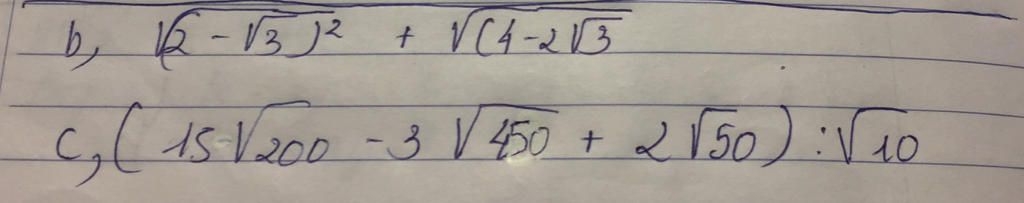 b, √(2 - √3)² + √(4-2√3
c, (15√200 - 3√450 + 2√50) : √10